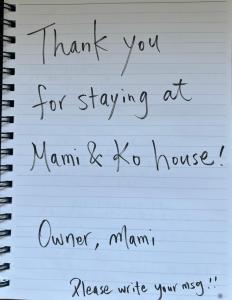 Thank you
for staying at
Mami & Ko house!
Owner, Mami
Please write your msg!!